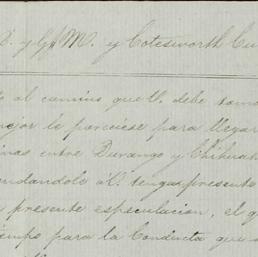 y G. M. y Cotesworth
al camino que V. debe
mejor le pareciese para llegar
entre Durango y Chihuah
endandole á V. tenga presente
presente especulacion, el
tiempo para la Conducta que